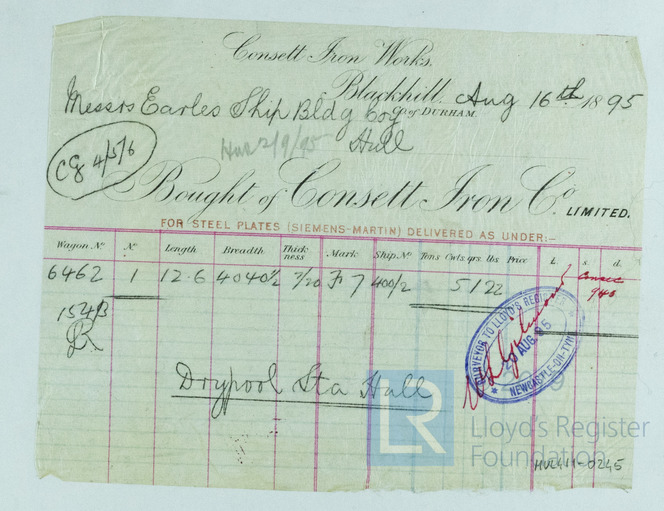 Consett Iron Works.
Blackhill, Aug 16th 1895
Co. of DURHAM.
Messrs Earles Ship Bldg Coy
Hull
Hul 2/9/95
4/5/6
Bought of Consett Iron Co. LIMITED.
FOR STEEL PLATES (SIEMENS-MARTIN) DELIVERED AS UNDER:-
Wagon No. No. Length Breadth Thickness Mark Ship No. Tons Cwts. qrs. lbs Price £ s. d.
6462 1 12.6 40 40½ 7/20 F 7 400/2 5 1 22
SURVEYOR TO LLOYD'S REGISTER
AUG. 95
NEWCASTLE-ON-TYNE
Drypool Sta Hull
LR
Lloyd's Register
Foundation